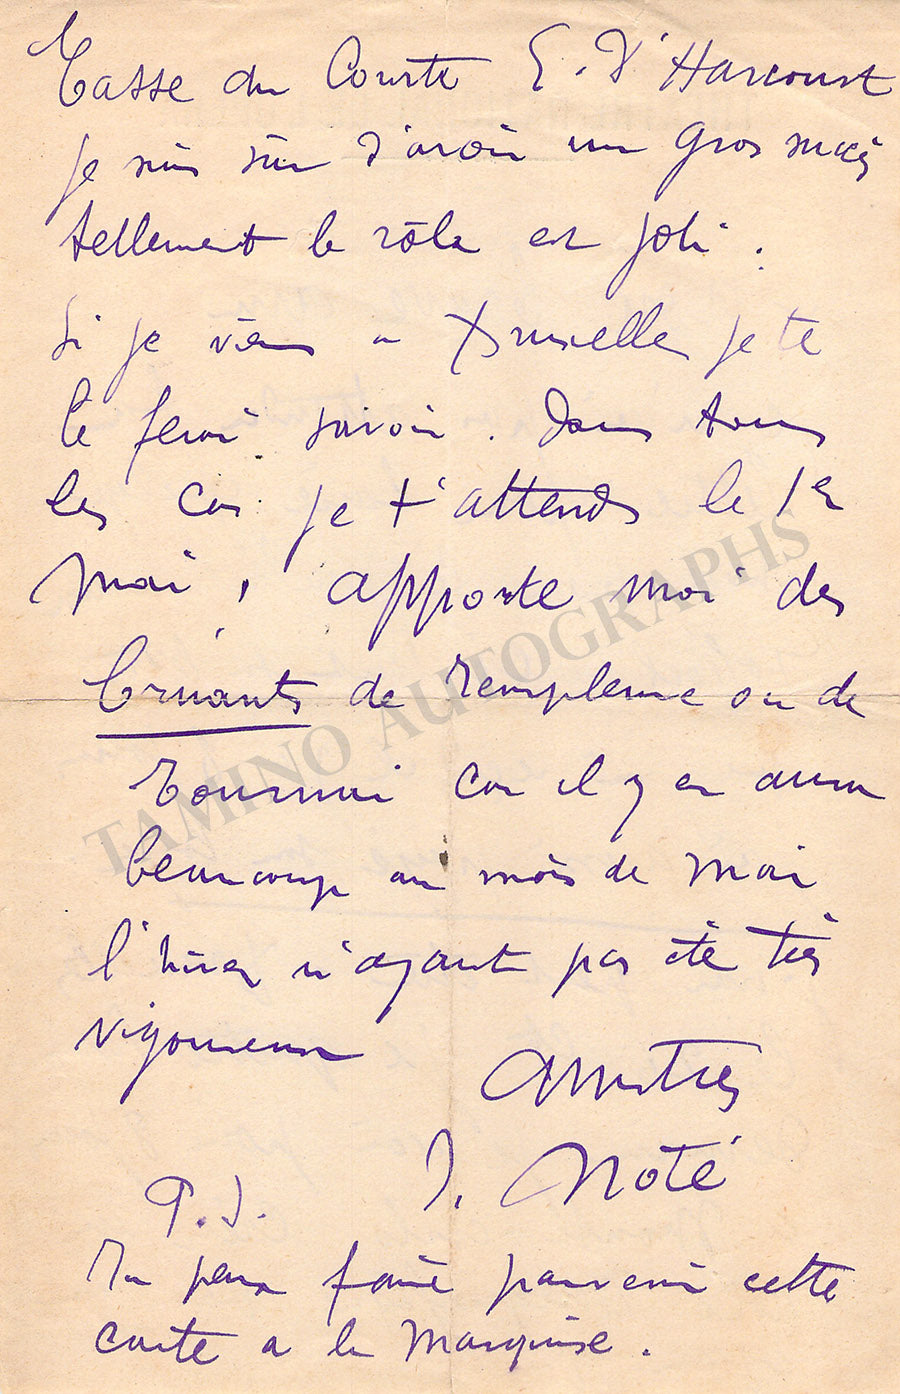 Tasse du Courte E. D'Harcourt
je suis sûr d'avoir un gros succès
tellement le rôle est joli.
Si je viens a Bruxelles je te
le ferai savoir. Dans tous
les cas je t'attends le 1er
mai, apporte moi des
Cruants de Templeuve ou de
Tournai car il y en aura
beaucoup au mois de mai
l'hiver n'ayant pas été très
vigoureux
Amitiés
J. Noté
P.S.
Tu peux faire parvenir cette
carte a la Marquise.
TAMINO AUTOGRAPHS